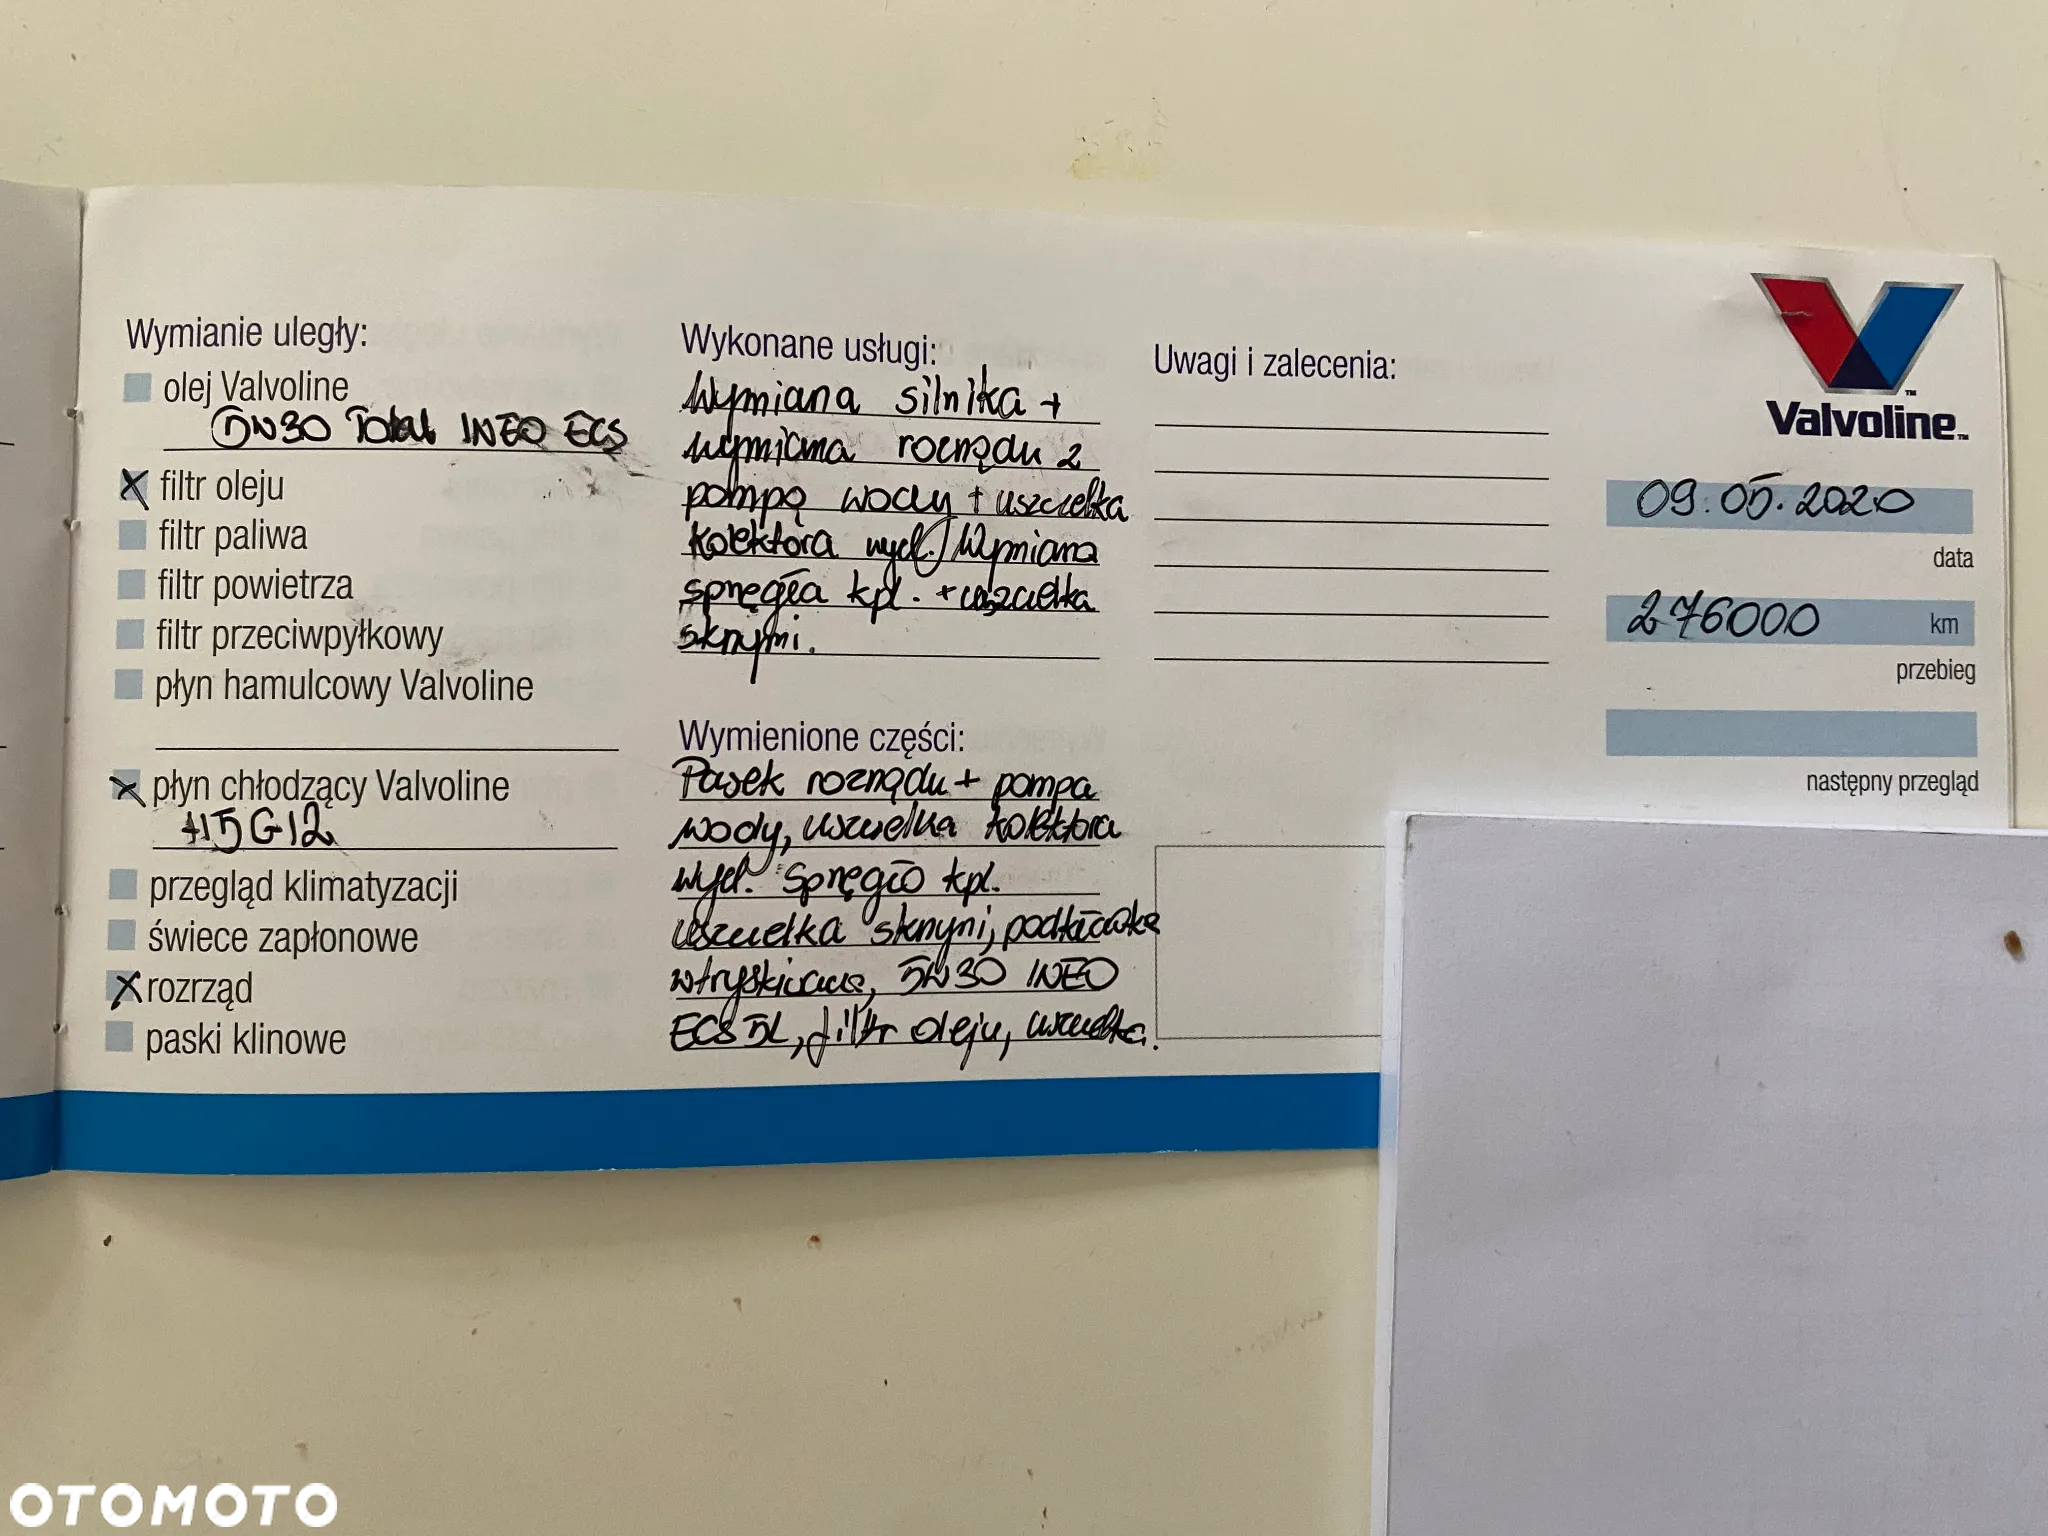 Wymianie uległy:
olej Valvoline
5W30 Total INEO ECS
filtr oleju
filtr paliwa
filtr powietrza
filtr przeciwpyłkowy
płyn hamulcowy Valvoline
płyn chłodzący Valvoline
G12
przegląd klimatyzacji
świece zapłonowe
rozrząd
paski klinowe
Wykonane usługi:
Wymiana silnika +
wymiana rozrządu z
pompą wody + uszczelka
kolektora wyd./Wymiana
sprzęgła kpl. + uszczelka
skrzyni.
Wymienione części:
Pasek rozrządu + pompa
wody, uszczelka kolektora
wyd. Sprzęgło kpl.
uszczelka skrzyni, podkładka
5W30 INEO
ECS 5L, filtr oleju, uszczelka.
Uwagi i zalecenia:
Valvoline™
09.05.2020
data
276000 km
przebieg
następny przegląd
OTOMOTO